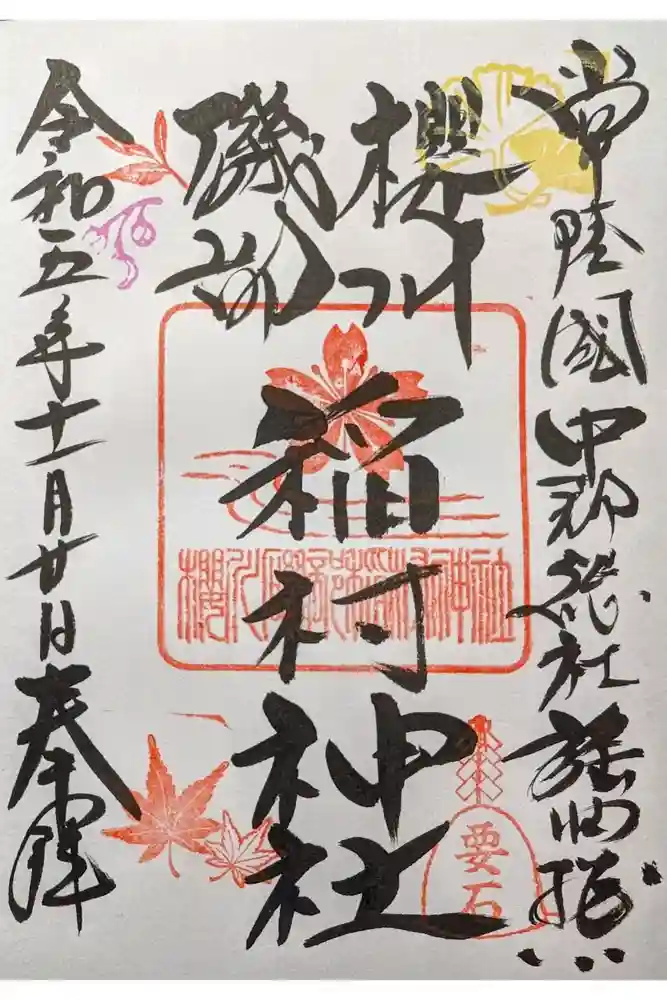 常陸國中郡総社謡曲櫻川
櫻川
磯部
稲村
神社
櫻川磯部稲村神社
要石
令和五年十一月廿日奉拝